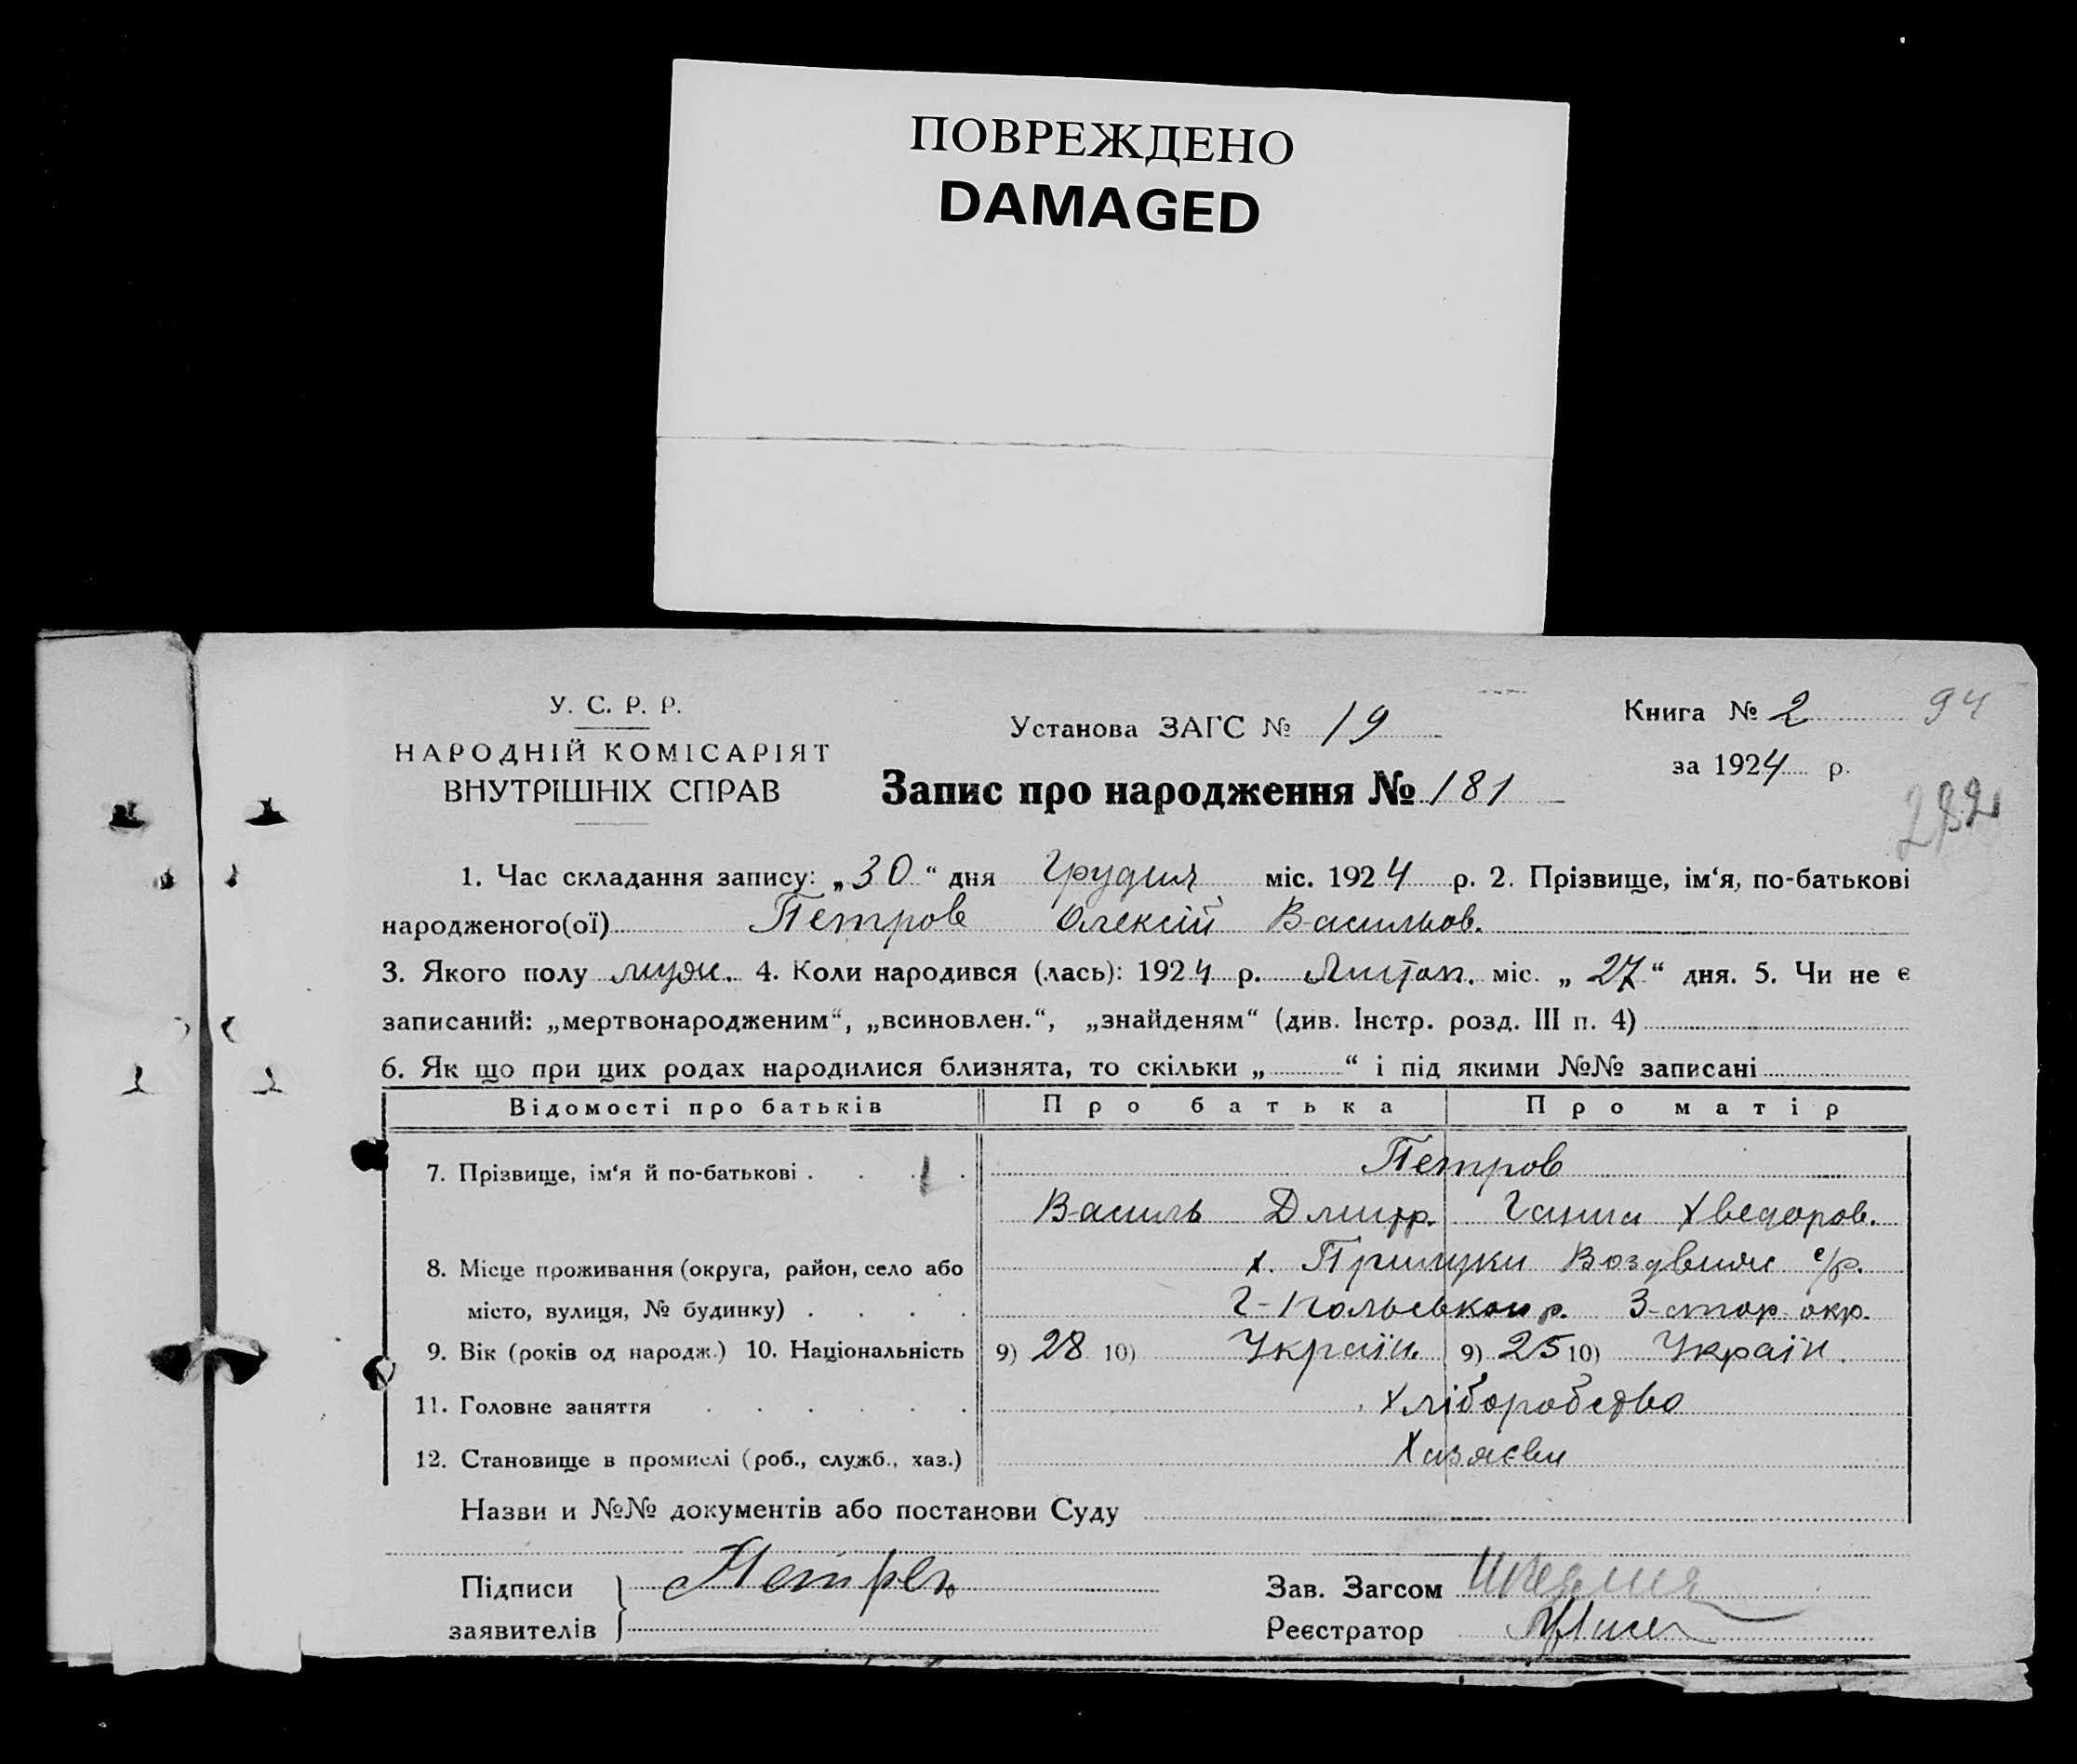 ПОВРЕЖДЕНО
DAMAGED
У. С. Р. Р.
НАРОДНІЙ КОМІСАРІЯТ
ВНУТРІШНІХ СПРАВ
Установа ЗАГС № 19
Запис про народження № 181
Книга № 2
94
за 1924 р.
282
1. Час складання запису: „30“ дня Грудня міс. 1924 р. 2. Прізвище, ім‘я, по-батькові
народженого(ої) Петров Олексій Васильов.
3. Якого полу муж. 4. Коли народився (лась): 1924 р. Листоп. міс. „27“ дня. 5. Чи не є
записаний: „мертвонародженим“, „всиновлен.“, „знайденям“ (див. Інстр. розд. III п. 4)
6. Як що при цих родах народилися близнята, то скільки „ “ і під якими №№ записані
Відомості про батьків Про батька Про матір
7. Прізвище, ім‘я й по-батькові . . . . Петров
Василь Дмитр. Ганна Хведоров.
8. Місце проживання (округа, район, село або х. Прилуки Воздвиж с/р.
місто, вулиця, № будинку) . . . . р. З-стор окр.
9. Вік (років од народж.) 10. Національність 9) 28 10) Україн. 9) 25 10) Україн.
11. Головне заняття . . . . . . Хліборобство
12. Становище в промислі (роб., служб., хаз.) Хазяєви
Назви и №№ документів або постанови Суду
Підписи
заявителів
Петров
Зав. Загсом
Реєстратор